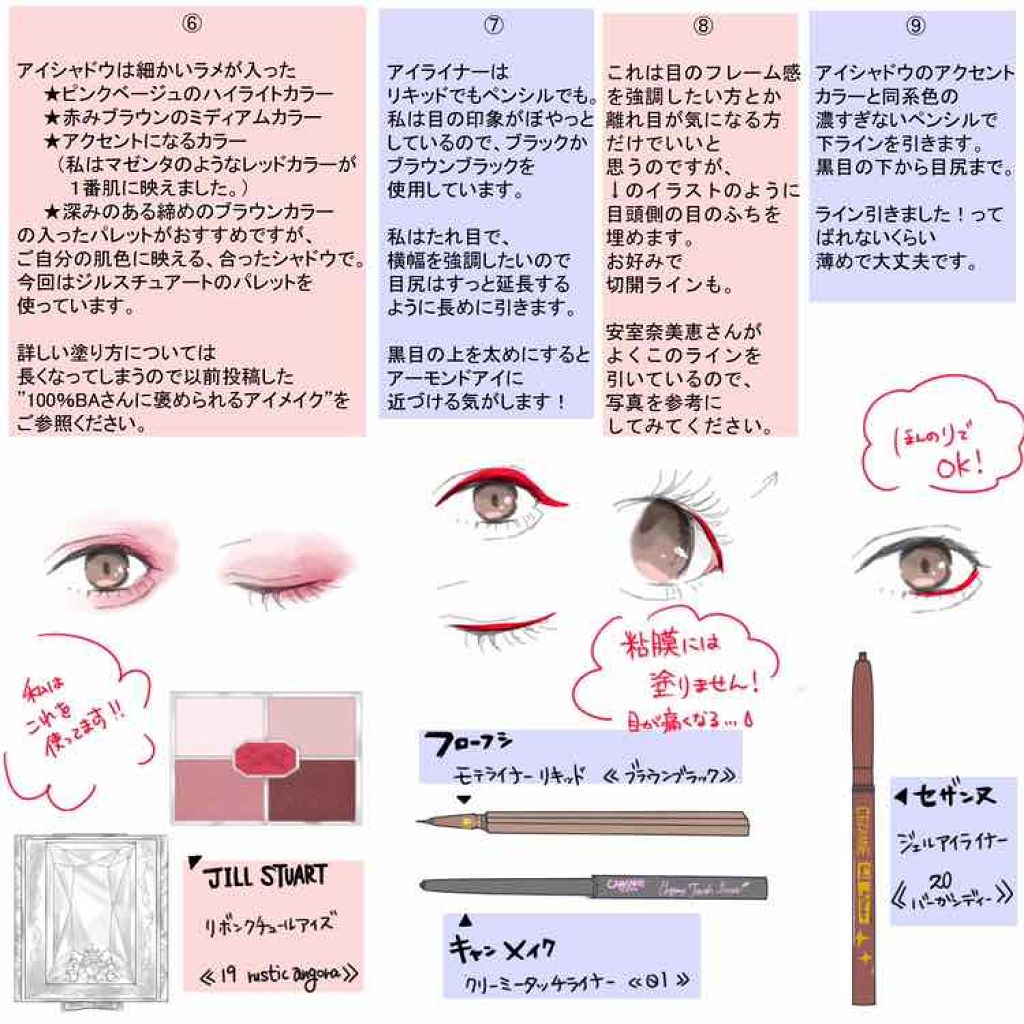 ⑥
アイシャドウは細かいラメが入った
★ピンクベージュのハイライトカラー
★赤みブラウンのミディアムカラー
★アクセントになるカラー
（私はマゼンタのようなレッドカラーが
１番肌に映えました。）
★深みのある締めのブラウンカラー
の入ったパレットがおすすめですが、
ご自分の肌色に映える、合ったシャドウで。
今回はジルスチュアートのパレットを
使っています。
詳しい塗り方については
長くなってしまうので以前投稿した
”100%BAさんに褒められるアイメイク”を
ご参照ください。
⑦
アイライナーは
リキッドでもペンシルでも。
私は目の印象がぼやっと
しているので、ブラックか
ブラウンブラックを
使用しています。
私はたれ目で、
横幅を強調したいので
目尻はすっと延長する
ように長めに引きます。
黒目の上を太めにすると
アーモンドアイに
近づける気がします！
⑧
これは目のフレーム感
を強調したい方とか
離れ目が気になる方
だけでいいと
思うのですが、
↓のイラストのように
目頭側の目のふちを
埋めます。
お好みで
切開ラインも。
安室奈美恵さんが
よくこのラインを
引いているので、
写真を参考に
してみてください。
⑨
アイシャドウのアクセント
カラーと同系色の
濃すぎないペンシルで
下ラインを引きます。
黒目の下から目尻まで。
ライン引きました！って
ばれないくらい
薄めで大丈夫です。
ほんのりで
OK!
粘膜には
塗りません!
目が痛くなる…
私は
これを
使ってます!!
JILL STUART
リボンクチュールアイズ
≪19 rustic angora≫
フローフシ
モテライナー リキッド ≪ブラウンブラック≫
キャンメイク
クリーミータッチライナー ≪01≫
セザンヌ
ジェルアイライナー
≪20
バーガンディー≫